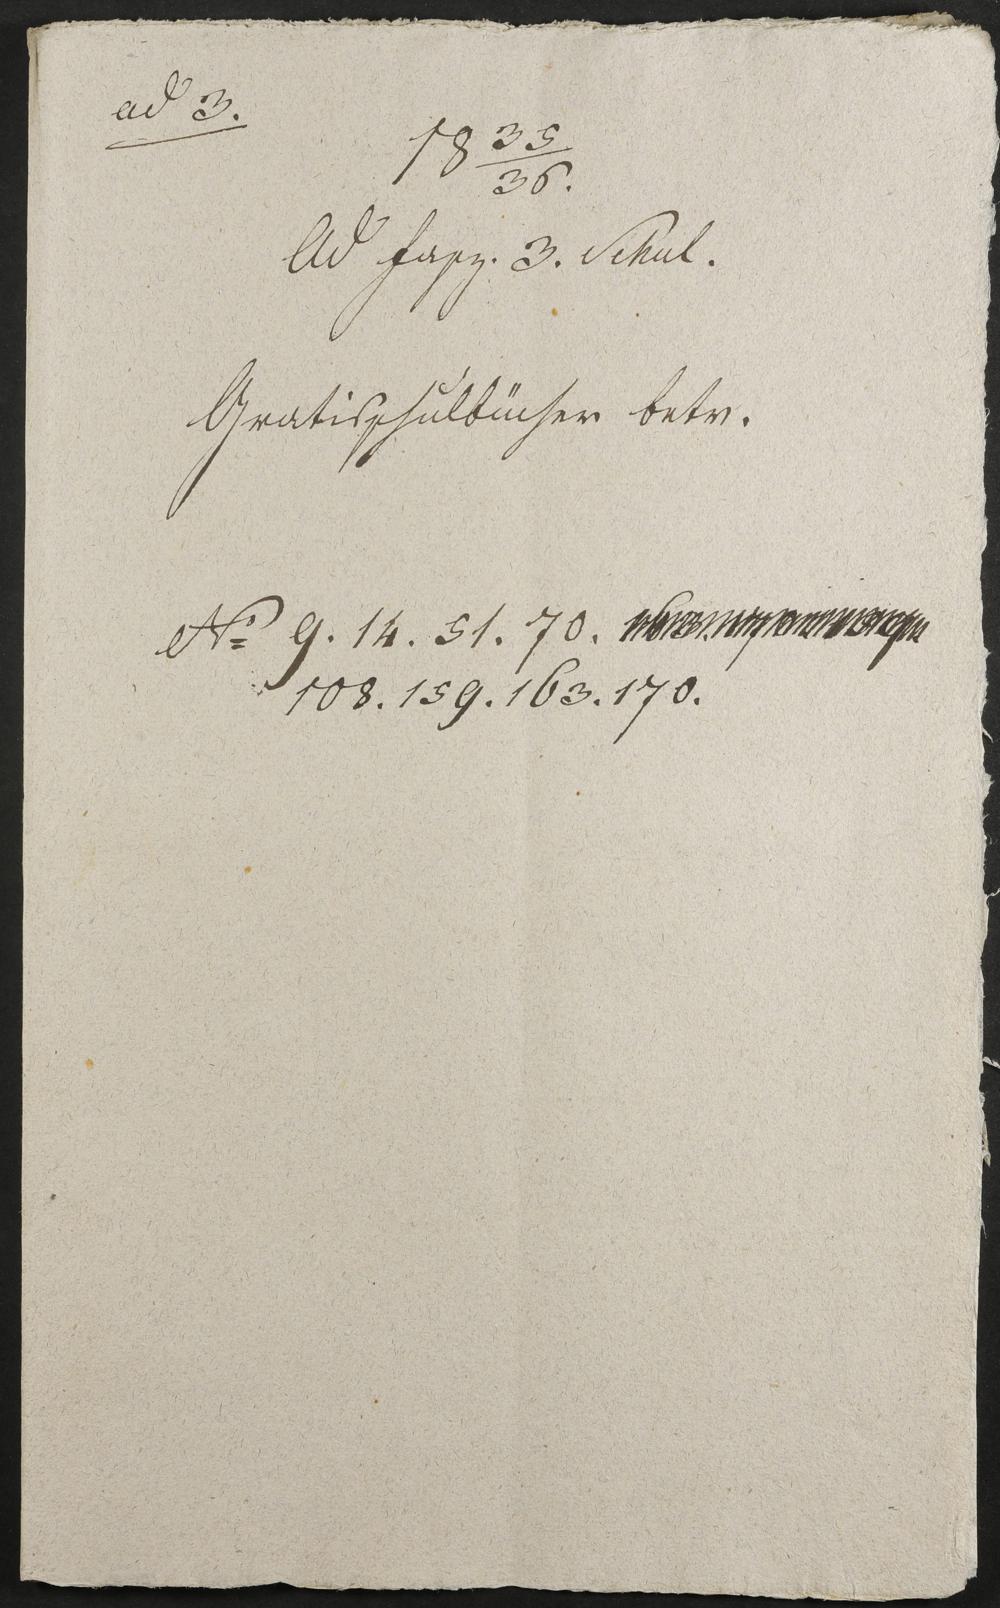 ad 3.
18 35/36.
Ad Fasz. 3. Schul.
Gratisschulbücher betr.
No 9. 14. 51. 70.
108. 159. 163. 170.